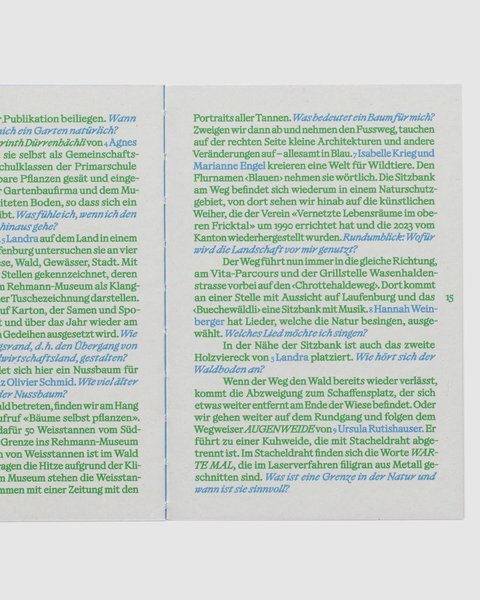 Publikation beiliegen. Wann
ich ein Garten natürlich?
rinth Dürrenbächli von 4 Agnes
sie selbst als Gemeinschafts-
chulklassen der Primarschule
bare Pflanzen gesät und einge-
r Gartenbaufirma und dem Mu-
iteten Boden, so dass sich ein
ibt. Was fühle ich, wenn ich den
hinaus gehe?
5 Landra auf dem Land in einem
ufenburg untersuchen sie an vier
se, Wald, Gewässer, Stadt. Mit
Stellen gekennzeichnet, deren
m Rehmann-Museum als Klang-
er Tuschezeichnung darstellen.
uf Karton, der Samen und Spo-
t und über das Jahr wieder am
Gedeihen ausgesetzt wird. Wie
gsrand, d. h. den Übergang von
dwirtschaftsland, gestalten?
det sich hier ein Nussbaum für
z Olivier Schmid. Wie viel älter
der Nussbaum?
ald betreten, finden wir am Hang
ufruf «Bäume selbst pflanzen».
dafür 50 Weisstannen vom Süd-
Grenze ins Rehmann-Museum
n von Weisstannen ist im Wald
ragen die Hitze aufgrund der Kli-
m Museum stehen die Weisstan-
mmen mit einer Zeitung mit den
Portraits aller Tannen. Was bedeutet ein Baum für mich?
Zweigen wir dann ab und nehmen den Fussweg, tauchen
auf der rechten Seite kleine Architekturen und andere
Veränderungen auf – allesamt in Blau. 7 Isabelle Krieg und
Marianne Engel kreieren eine Welt für Wildtiere. Den
Flurnamen ‹Blauen› nehmen sie wörtlich. Die Sitzbank
am Weg befindet sich wiederum in einem Naturschutz-
gebiet, von dort sehen wir hinab auf die künstlichen
Weiher, die der Verein «Vernetzte Lebensräume im obe-
ren Fricktal» um 1990 errichtet hat und die 2023 vom
Kanton wiederhergestellt wurden. Rundumblick: Wofür
wird die Landschaft vor mir genutzt?
Der Weg führt nun immer in die gleiche Richtung,
am Vita-Parcours und der Grillstelle Wasenhalden-
strasse vorbei auf den ‹Chrottehaldeweg›. Dort kommt
an einer Stelle mit Aussicht auf Laufenburg und das
‹Buechewäldli› eine Sitzbank mit Musik. 8 Hannah Wein-
berger hat Lieder, welche die Natur besingen, ausge-
wählt. Welches Lied möchte ich singen?
In der Nähe der Sitzbank ist auch das zweite
Holzviereck von 5 Landra platziert. Wie hört sich der
Waldboden an?
Wenn der Weg den Wald bereits wieder verlässt,
kommt die Abzweigung zum Schaffensplatz, der sich
etwas weiter entfernt am Ende der Wiese befindet. Oder
wir gehen weiter auf dem Rundgang und folgen dem
Wegweiser AUGENWEIDE von 9 Ursula Rutishauser. Er
führt zu einer Kuhweide, die mit Stacheldraht abge-
trennt ist. Im Stacheldraht finden sich die Worte WAR-
TE MAL, die im Laserverfahren filigran aus Metall ge-
schnitten sind. Was ist eine Grenze in der Natur und
wann ist sie sinnvoll?
15